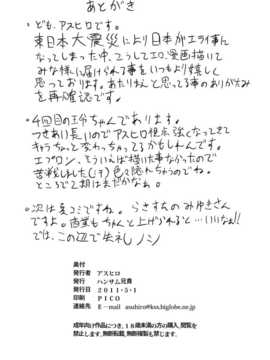 あとがき
。ども、アスヒロです。
東日本大震災により日本がエライ事に
なってしまった中、こうしてエロ漫画描いて
みな様に届けられて事をいつもより嬉しく
思っております。あたりまえと思ってる事のありがたみ
を再確認です。
。4回目の王子ちゃんであります。
つきあい長いのでアスヒロ視点強くなってきて
キャラちょっと変わっちゃってるかもしれんです。
エプロン、そういえば描いた事なかったので
苦戦しました(汗)色々隠れちゃうのでね。
ところで2期はまだかなぁ。
。次は夏コミですね。らきすたのみゆきさん
ですよ。商業もちゃんと上げられると…いいなぁ!!
では、この辺で失礼ノシ
奥付
発行者 アスヒロ
発行 ハンサム兄貴
発行日 2011・5・1
印刷 PICO
連絡先 E－mail asuhiro@kss.biglobe.ne.jp
成年向け作品につき、18歳未満の方の購入、閲覧を
禁止します。無断転載、無断複製も禁じます。